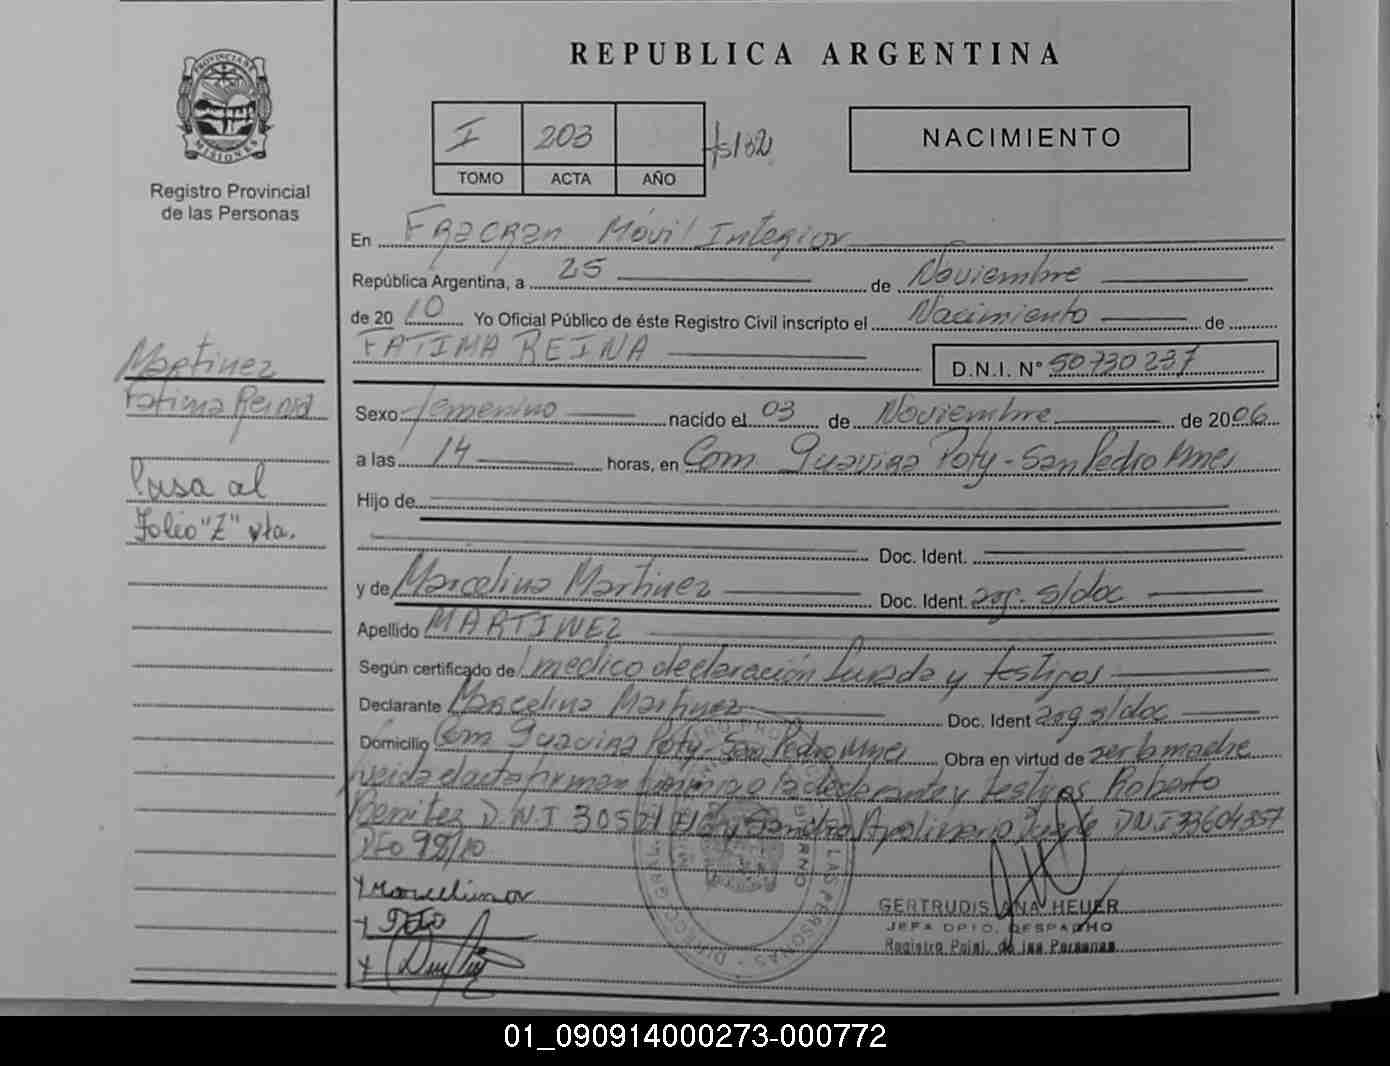 PROVINCIA DE
MISIONES
Registro Provincial
de las Personas
REPUBLICA ARGENTINA
I 203 fs 132
TOMO ACTA AÑO
NACIMIENTO
En Fracran Móvil Interior
República Argentina, a 25 de Noviembre
de 2010 Yo Oficial Público de éste Registro Civil inscripto el Nacimiento de
FATIMA REINA D.N.I. N° 50730237
Martinez
Fatima Reina
Pasa al
Folio "Z" vta.
Sexo femenino nacido el 03 de Noviembre de 2006
a las 14 horas, en Com Guavira Poty - San Pedro Mnes
Hijo de
Doc. Ident.
y de Marcelina Martinez Doc. Ident. arg. s/doc
Apellido MARTINEZ
Según certificado de medico declaración Jurada y testigos
Declarante Marcelina Martinez Doc. Ident arg s/doc
Domicilio Com Guavira Poty - San Pedro Mnes Obra en virtud de ser la madre
leida el acta firman la declarante y testigos Roberto
Benitez D.N.I 30521 y Sandro Apolinario Duarte DNI 33604357
DEO 98/10
Marcelina
GERTRUDIS ANA HEUER
JEFA DPTO. DESPACHO
Registro Pcial. de las Personas
LAS PERSONAS
01_090914000273-000772